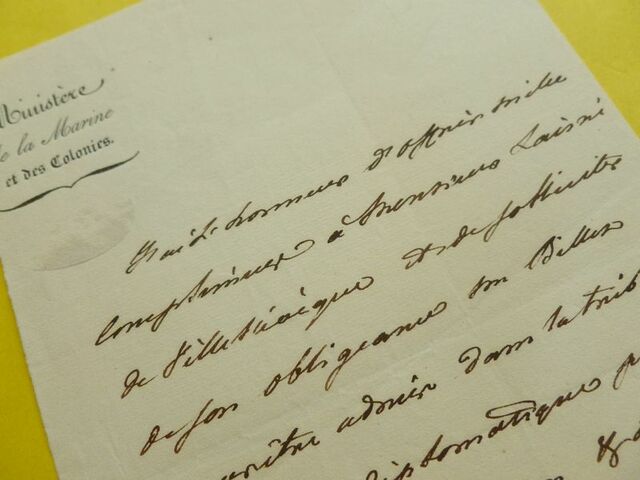 Ministère
de la Marine
et des Colonies.
J'ai l'honneur d'offrir mille
complimens à Monsieur Lainé
de Villevêque et de solliciter
de son obligeance un Billet
être admis dans la trib
diplomatique p